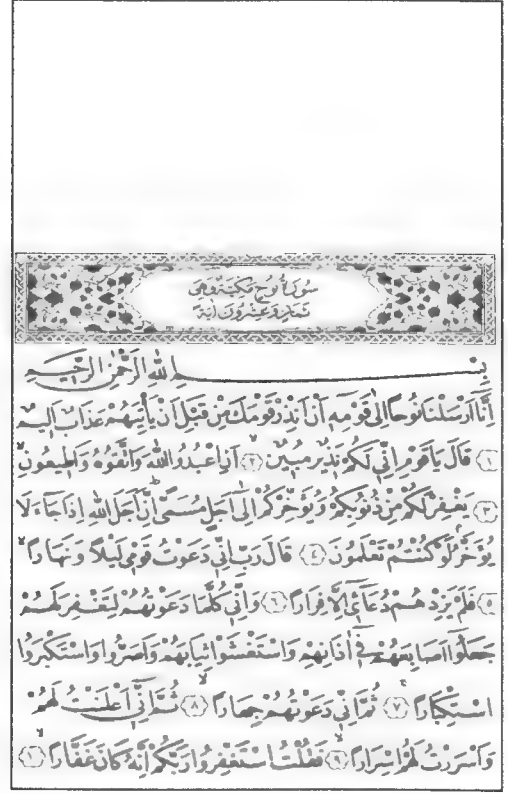 سُورَةُ نُوحٍ مَكِّيَّةٌ وَهِيَ
ثَمَانٍ وَعِشْرُونَ آيَةً
بِسْمِ اللهِ الرَّحْمٰنِ الرَّحِيمِ
اِنَّٓا اَرْسَلْنَا نُوحًا اِلٰى قَوْمِهٖٓ اَنْ اَنْذِرْ قَوْمَكَ مِنْ قَبْلِ اَنْ يَأْتِيَهُمْ عَذَابٌ اَلِيمٌ
﴿١﴾ قَالَ يَا قَوْمِ اِنّٖي لَكُمْ نَذِيرٌ مُبِينٌ ﴿٢﴾ اَنِ اعْبُدُوا اللهَ وَاتَّقُوهُ وَاَطِيعُونِ
﴿٣﴾ يَغْفِرْ لَكُمْ مِنْ ذُنُوبِكُمْ وَيُؤَخِّرْكُمْ اِلٰٓى اَجَلٍ مُسَمًّى اِنَّ اَجَلَ اللهِ اِذَا جَٓاءَ لَا
يُؤَخَّرُ لَوْ كُنْتُمْ تَعْلَمُونَ ﴿٤﴾ قَالَ رَبِّ اِنّٖي دَعَوْتُ قَوْمٖي لَيْلًا وَنَهَارًا
﴿٥﴾ فَلَمْ يَزِدْهُمْ دُعَٓائٖٓي اِلَّا فِرَارًا ﴿٦﴾ وَاِنّٖي كُلَّمَا دَعَوْتُهُمْ لِتَغْفِرَ لَهُمْ
جَعَلُٓوا اَصَابِعَهُمْ فٖٓي اٰذَانِهِمْ وَاسْتَغْشَوْا ثِيَابَهُمْ وَاَصَرُّوا وَاسْتَكْبَرُوا
اسْتِكْبَارًا ﴿٧﴾ ثُمَّ اِنّٖي دَعَوْتُهُمْ جِهَارًا ﴿٨﴾ ثُمَّ اِنّٖٓي اَعْلَنْتُ لَهُمْ
وَاَسْرَرْتُ لَهُمْ اِسْرَارًا ﴿٩﴾ فَقُلْتُ اسْتَغْفِرُوا رَبَّكُمْ اِنَّهُ كَانَ غَفَّارًا ﴿١٠﴾